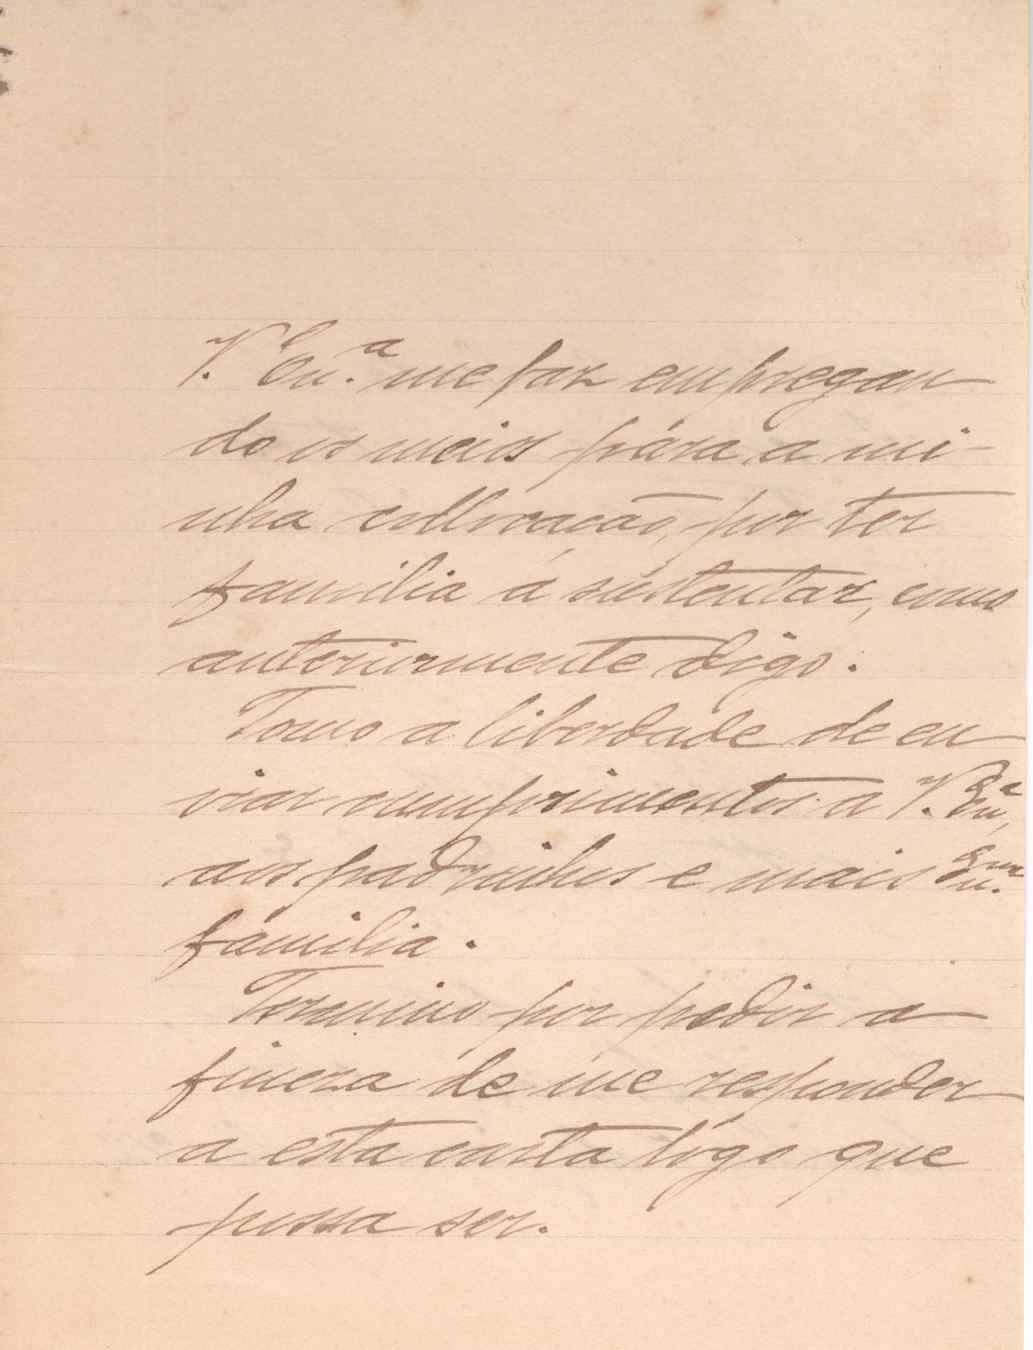 V. Ex.ª me faz empregan
do os meios pára a mi-
nha collocação, por ter
familia á sustentar, como
anteriormente digo.
Tomo a liberdade de en
viar cumprimentos a V. Exª,
aos padrinhos e mais Ex.ma
familia.
Termino por pedir a
fineza de me responder
a esta carta lógo que
possa ser.